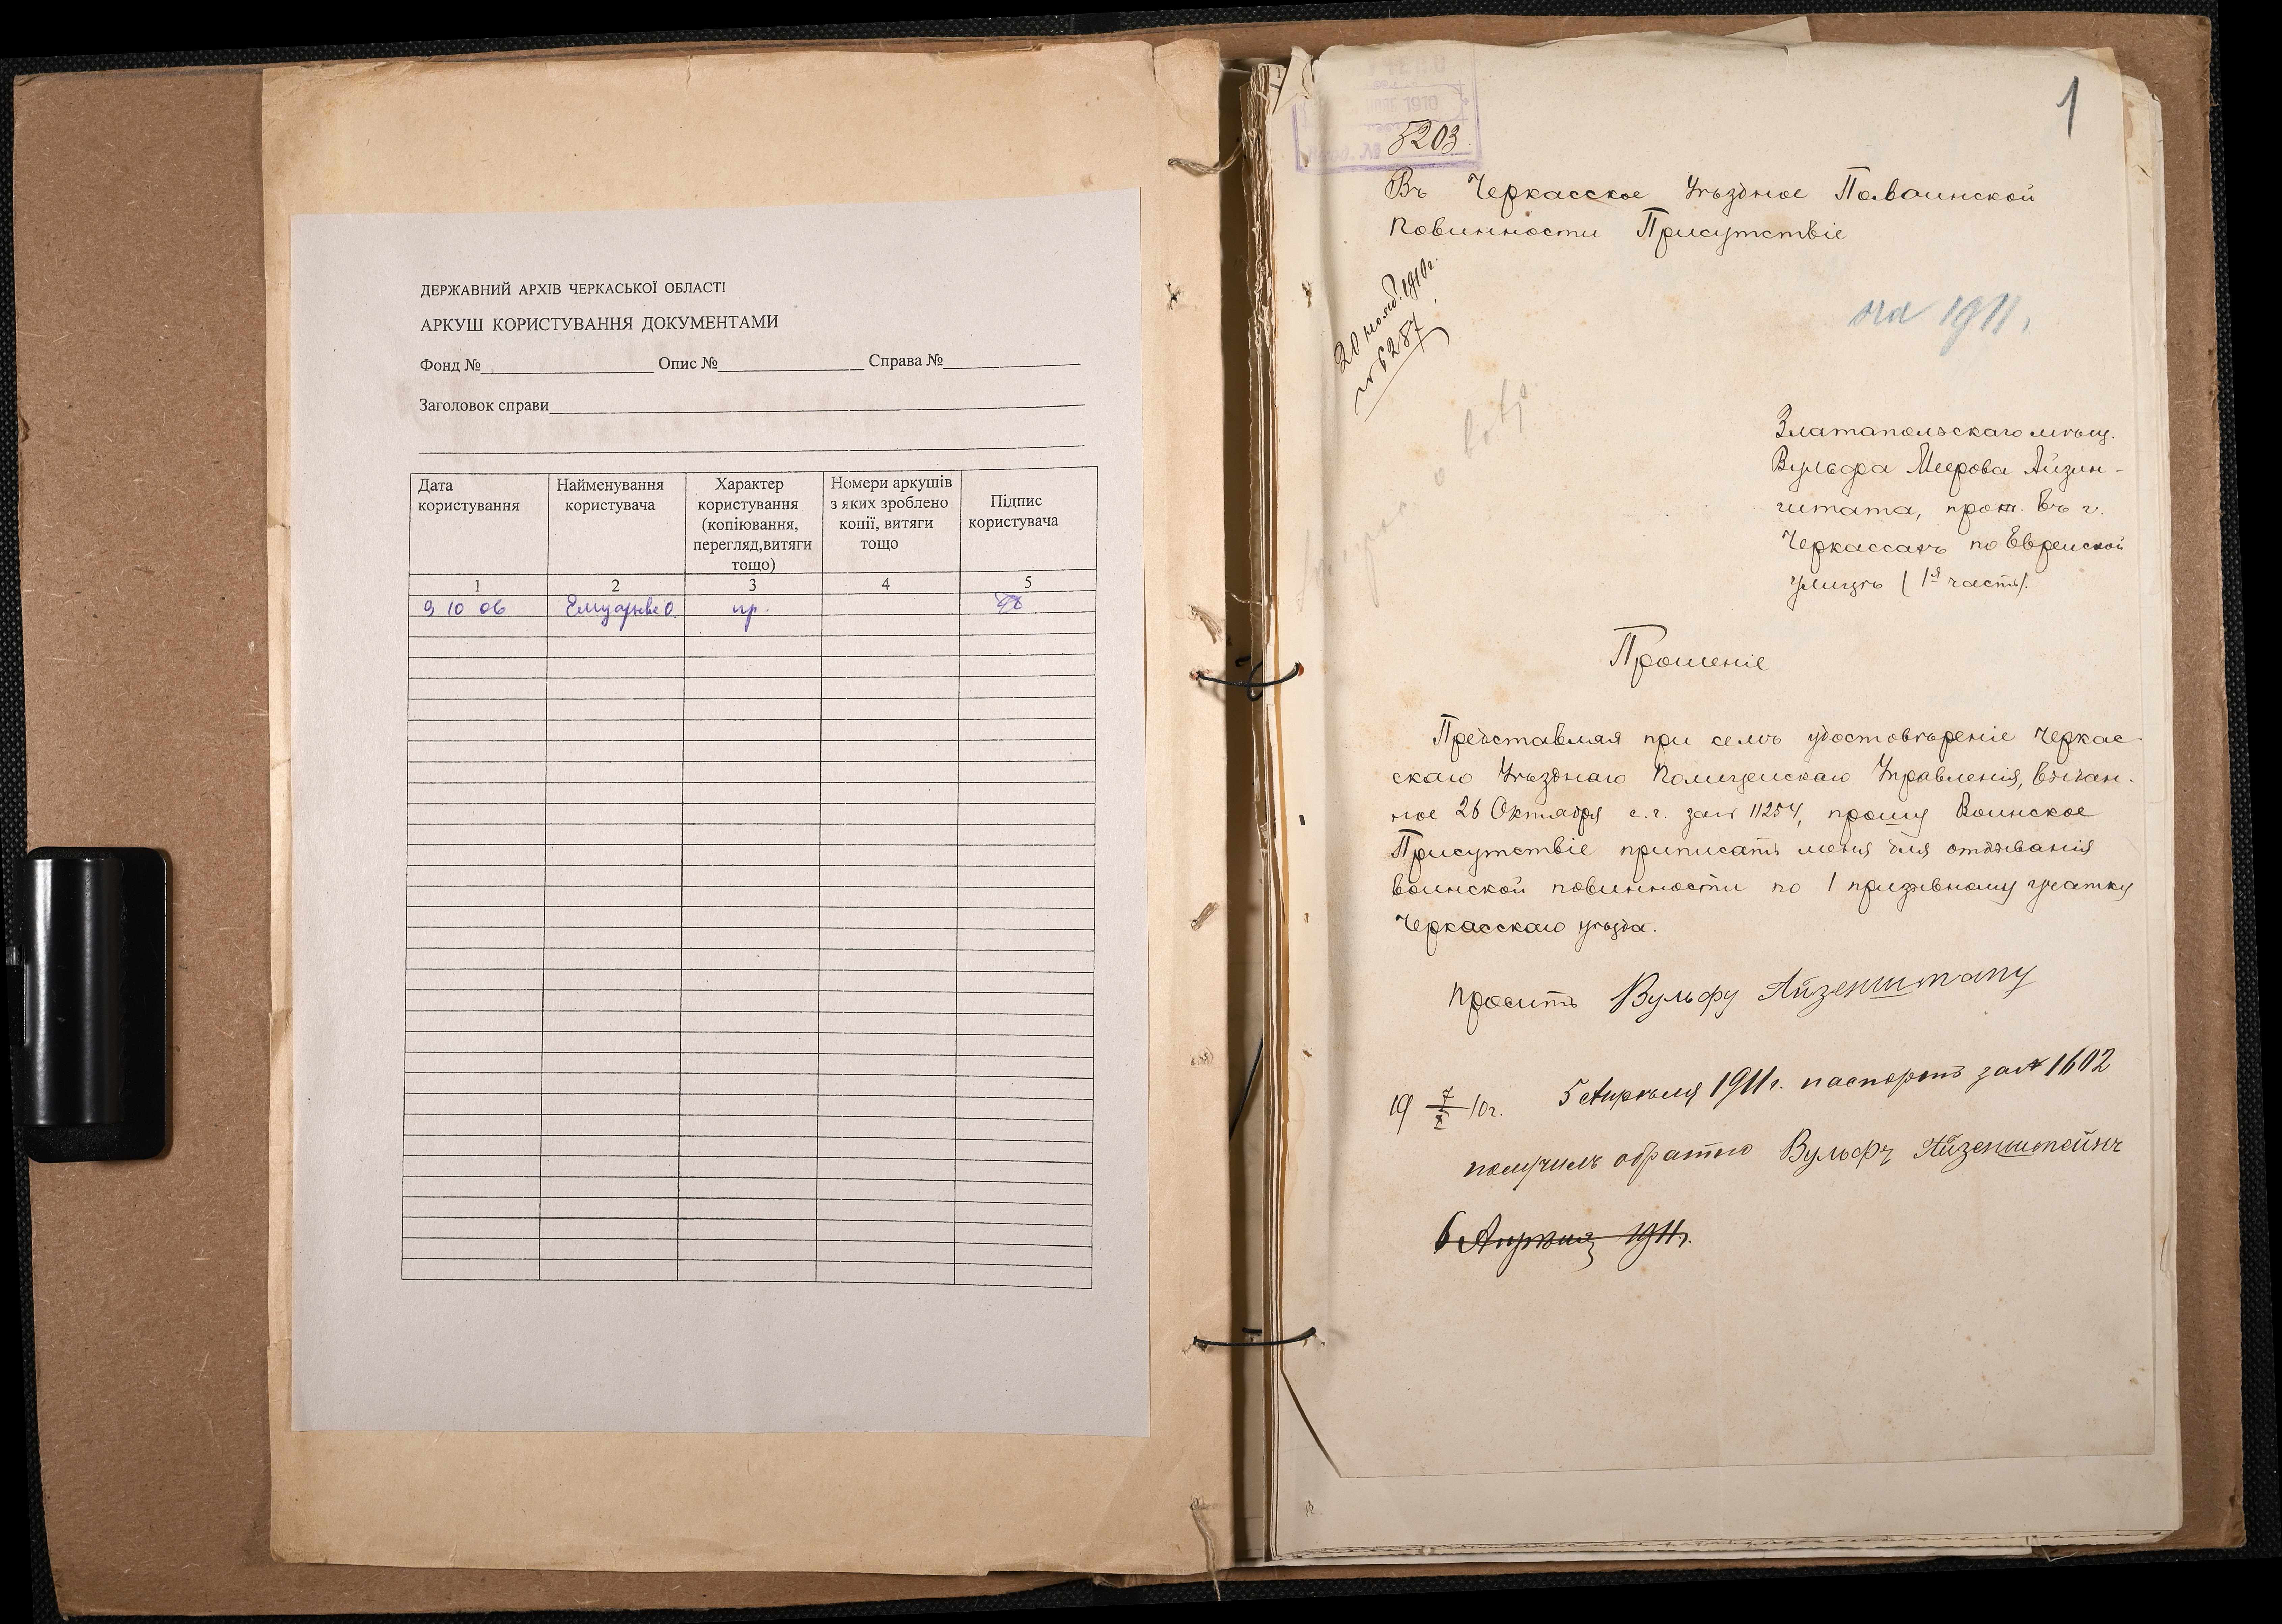 ДЕРЖАВНИЙ АРХІВ ЧЕРКАСЬКОЇ ОБЛАСТІ
АРКУШ КОРИСТУВАННЯ ДОКУМЕНТАМИ
Фонд № Опис № Справа №
Заголовок справи
Дата користування
Найменування користувача
Характер користування (копіювання, перегляд,витяги тощо)
Номери аркушів з яких зроблено копії, витяги тощо
Підпис користувача
1 2 3 4 5
9 10 06 пр.
1
1910
5203
Въ Черкасское Уѣздное По воинской
Повинности Присутствіе
20 нояб. 1910г.
№ 6287
на 1911.
Златапольскаго мѣщ.
Вульфа Меерова Айзин-
штата, прож. въ г.
Черкассахъ по Еврейской
улицѣ (1я часть).
Прошеніе
Представляя при семъ удостовѣреніе Черкас-
скаго Уѣзднаго Полицейскаго Управленія, выдан-
ное 26 Октября с.г. за № 11254, прошу Воинское
Присутствіе приписать меня для отбыванія
воинской повинности по 1 призывному участку
Черкасскаго уѣзда.
Проситъ Вульфу
19 10г. 5 Апрѣля 1911г. паспортъ за № 1602
получилъ обратно Вульфъ Айзенштейнъ
6 Апрѣля 1911г.